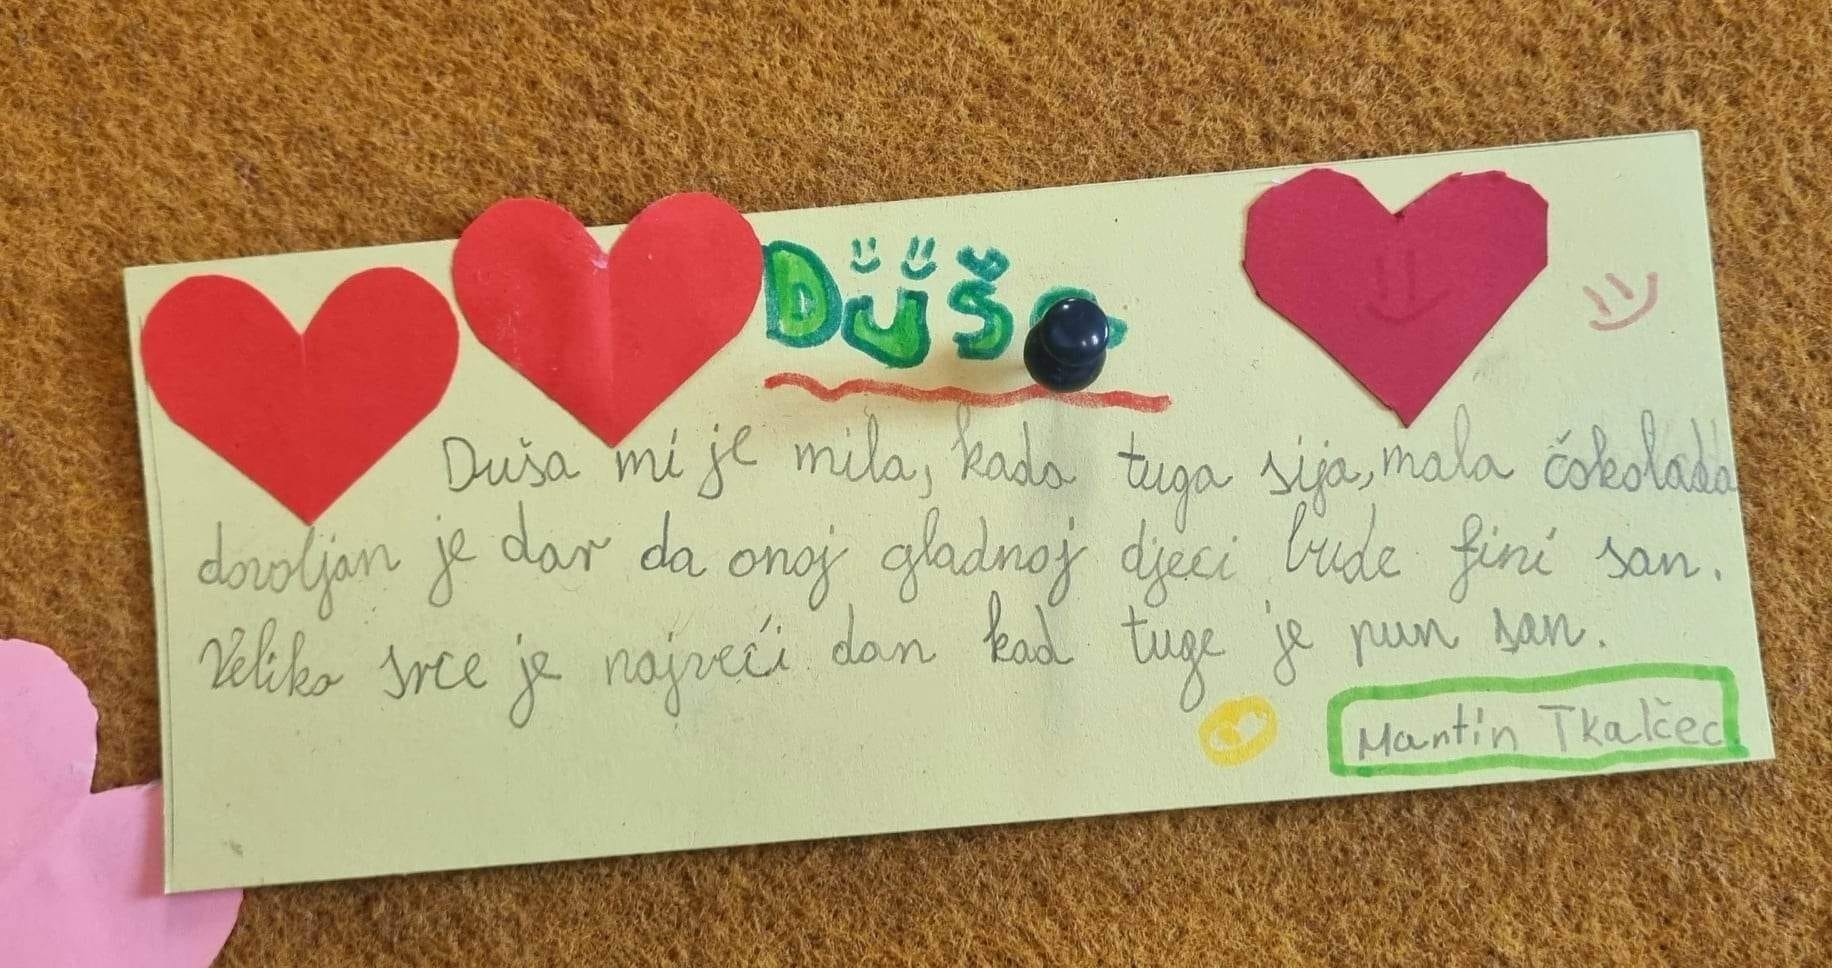 Duša
Duša mi je mila, kada tuga sija, mala čokolada
dovoljan je dar da onoj gladnoj djeci bude fini san.
Veliko srce je najveći dan kad tuge je pun san.
Martin Tkalčec